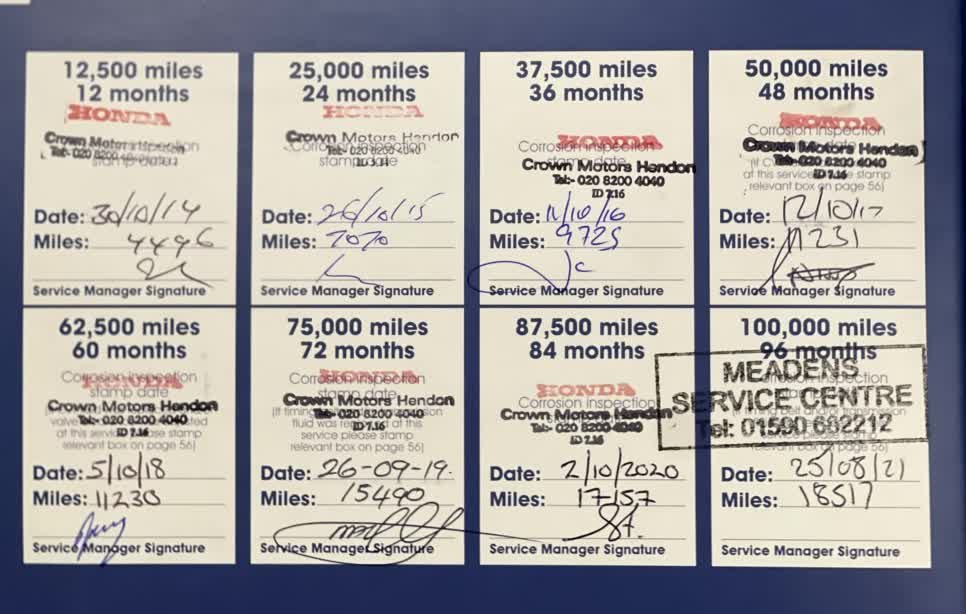 12,500 miles
12 months
HONDA
Crown Motors Hendon
Tel:- 020 8200 4040
Date: 30/10/14
Miles: 4496
Service Manager Signature
25,000 miles
24 months
HONDA
Crown Motors Hendon
Tel:- 020 8200 4040
Date: 26/10/15
Miles: 7070
Service Manager Signature
37,500 miles
36 months
HONDA
Corrosion inspection
stamp date
Crown Motors Hendon
Tel:- 020 8200 4040
ID 7.16
Date: 11/10/16
Miles: 9725
Service Manager Signature
50,000 miles
48 months
HONDA
Corrosion inspection
Crown Motors Hendon
Tel:- 020 8200 4040
ID 7.16
at this service please stamp
relevant box on page 56)
Date: 12/10/17
Miles: 11231
Service Manager Signature
62,500 miles
60 months
Corrosion inspection
HONDA
stamp date
Crown Motors Hendon
Tel:- 020 8200 4040
at this service please stamp
ID 7.16
relevant box on page 56)
Date: 5/10/18
Miles: 11230
Service Manager Signature
75,000 miles
72 months
Corrosion inspection
HONDA
stamp date
Crown Motors Hendon
Tel:- 020 8200 4040
ID 7.16
service please stamp
relevant box on page 56)
Date: 26-09-19.
Miles: 15490
Service Manager Signature
87,500 miles
84 months
HONDA
Corrosion inspection
Crown Motors Hendon
Tel:- 020 8200 4040
ID 7.16
Date: 2/10/2020
Miles: 17157
Service Manager Signature
100,000 miles
96 months
MEADENS
SERVICE CENTRE
Tel: 01590 682212
Date: 25/08/21
Miles: 18517
Service Manager Signature